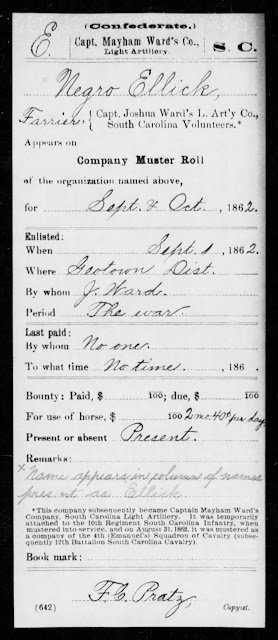 (Confederate.)
E. Capt. Mayham Ward's Co., S. C.
Light Artillery.
Negro Ellick,
Farrier, { Capt. Joshua Ward's L. Art'y Co.,
South Carolina Volunteers.*
Appears on
Company Muster Roll
of the organization named above,
for Sept. & Oct., 1862.
Enlisted:
When Sept 1, 1862.
Where Geotown Dist.
By whom J. Ward.
Period The war.
Last paid:
By whom No one.
To what time No time., 186 .
Bounty: Paid, $ 100; due, $ 100
For use of horse, $ 100 2 mo. 40¢ per day
Present or absent Present.
Remarks:
x Name appears in column of names
present as Ellick
*This company subsequently became Captain Mayham Ward's
Company, South Carolina Light Artillery. It was temporarily
attached to the 10th Regiment South Carolina Infantry, when
mustered into service, and on August 31, 1862, it was mustered as
a company of the 4th (Emanuel's) Squadron of Cavalry (sub-
sequently 12th Battalion South Carolina Cavalry).
Book mark:
F. C. Pratz,
(642) Copyist.